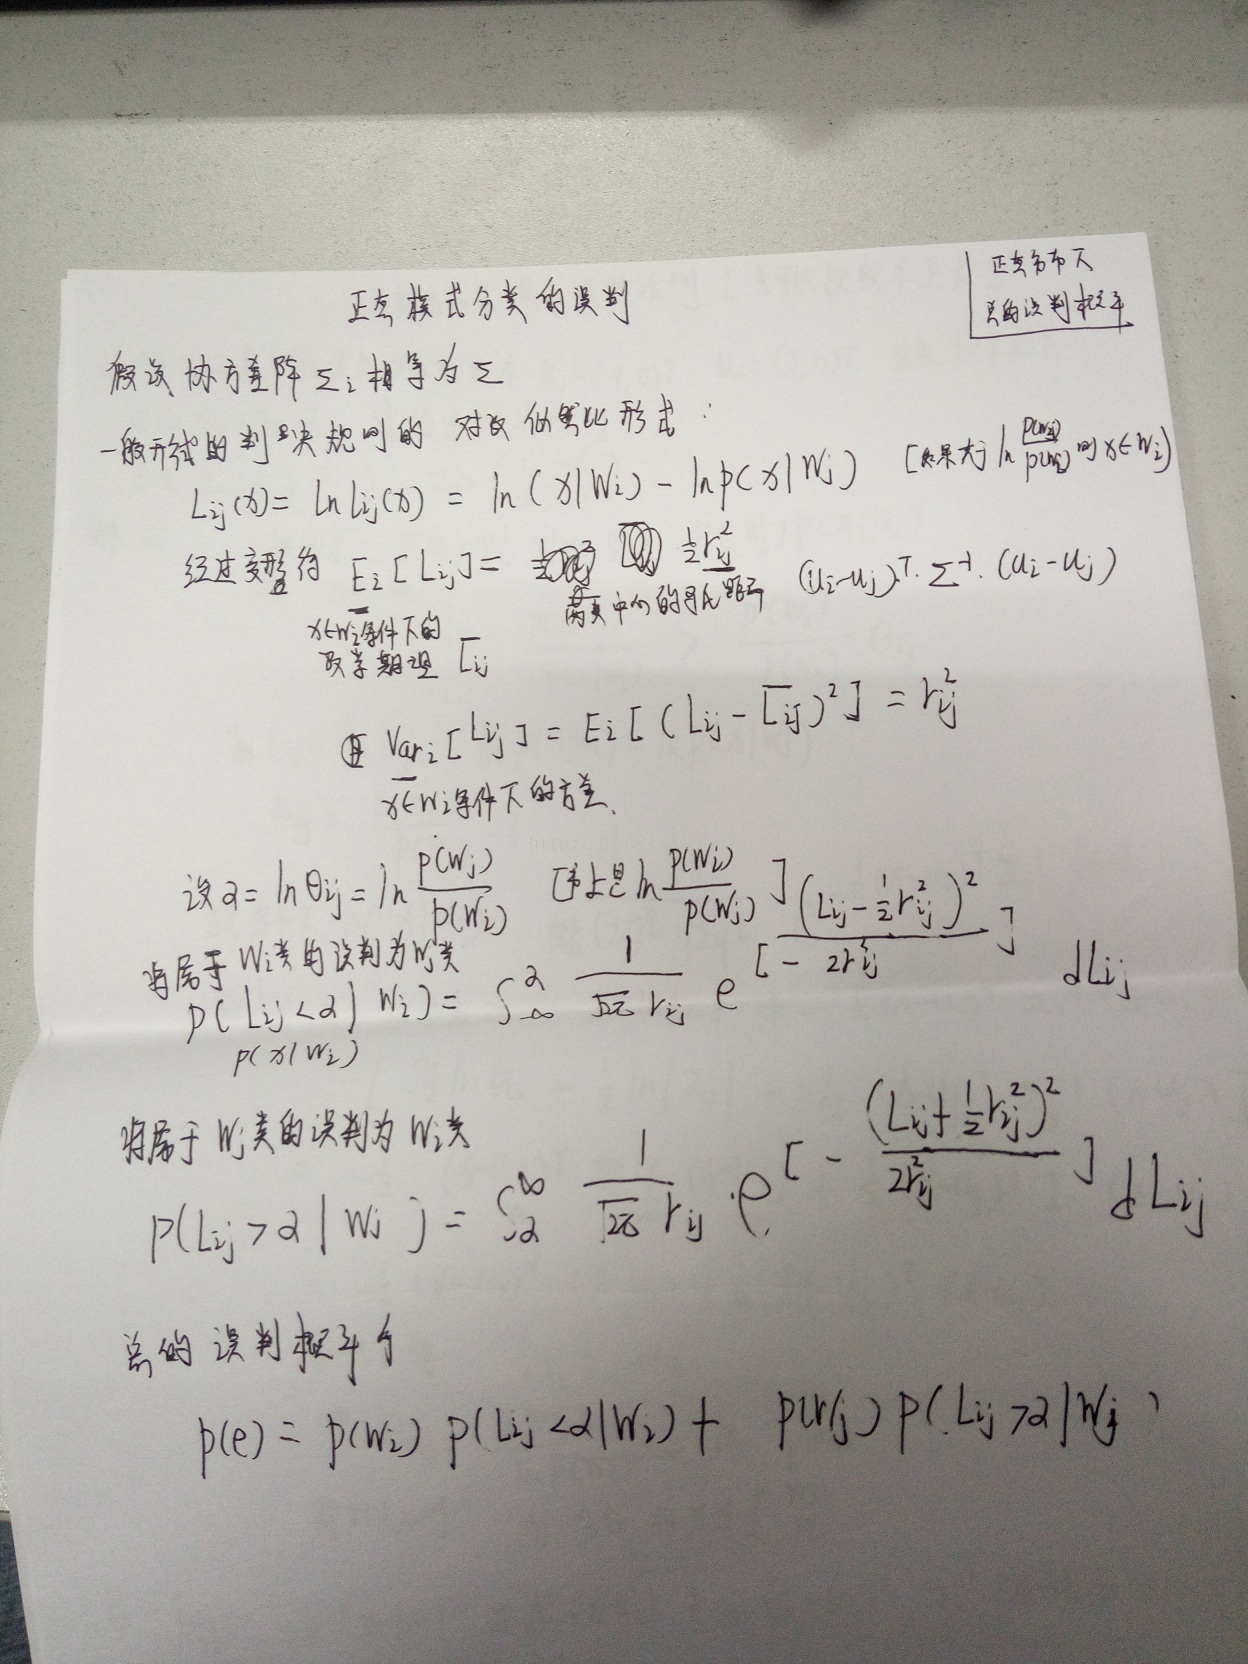 正态分布下
总的误判概率
正态模式分类的误判
假设协方差阵 Σi 相等为 Σ
一般形式的判决规则的 对数似然比形式：
Lij(x) = ln lij(x) = ln(x|Wi) - lnp(x|Wj) [如果大于 ln p(Wj)/p(Wi) 则 x∈Wi)
经过变形得 Ei[Lij] = ½rij² (ui-uj)ᵀ·Σ⁻¹·(ui-uj)
两类中心的马氏距离
x∈Wi条件下的
数学期望 L̄ij
且 Vari[Lij] = Ei[(Lij - L̄ij)²] = rij²
x∈Wi条件下的方差.
设 α = lnθij = ln p(Wj)/p(Wi) [书上是 ln p(Wi)/p(Wj)]
将属于Wi类的误判为Wj类
p(Lij<α|Wi) = ∫_{-∞}^{α} 1/(√2π rij) e^[-(Lij-½rij²)²/2rij²] dLij
p(x|Wi)
将属于Wj类的误判为Wi类
p(Lij>α|Wj) = ∫_{α}^{∞} 1/(√2π rij) ·e^[-(Lij+½rij²)²/2rij²] dLij
总的误判概率
p(e) = p(Wi) p(Lij<α|Wi) + p(Wj) p(Lij>α|Wj)